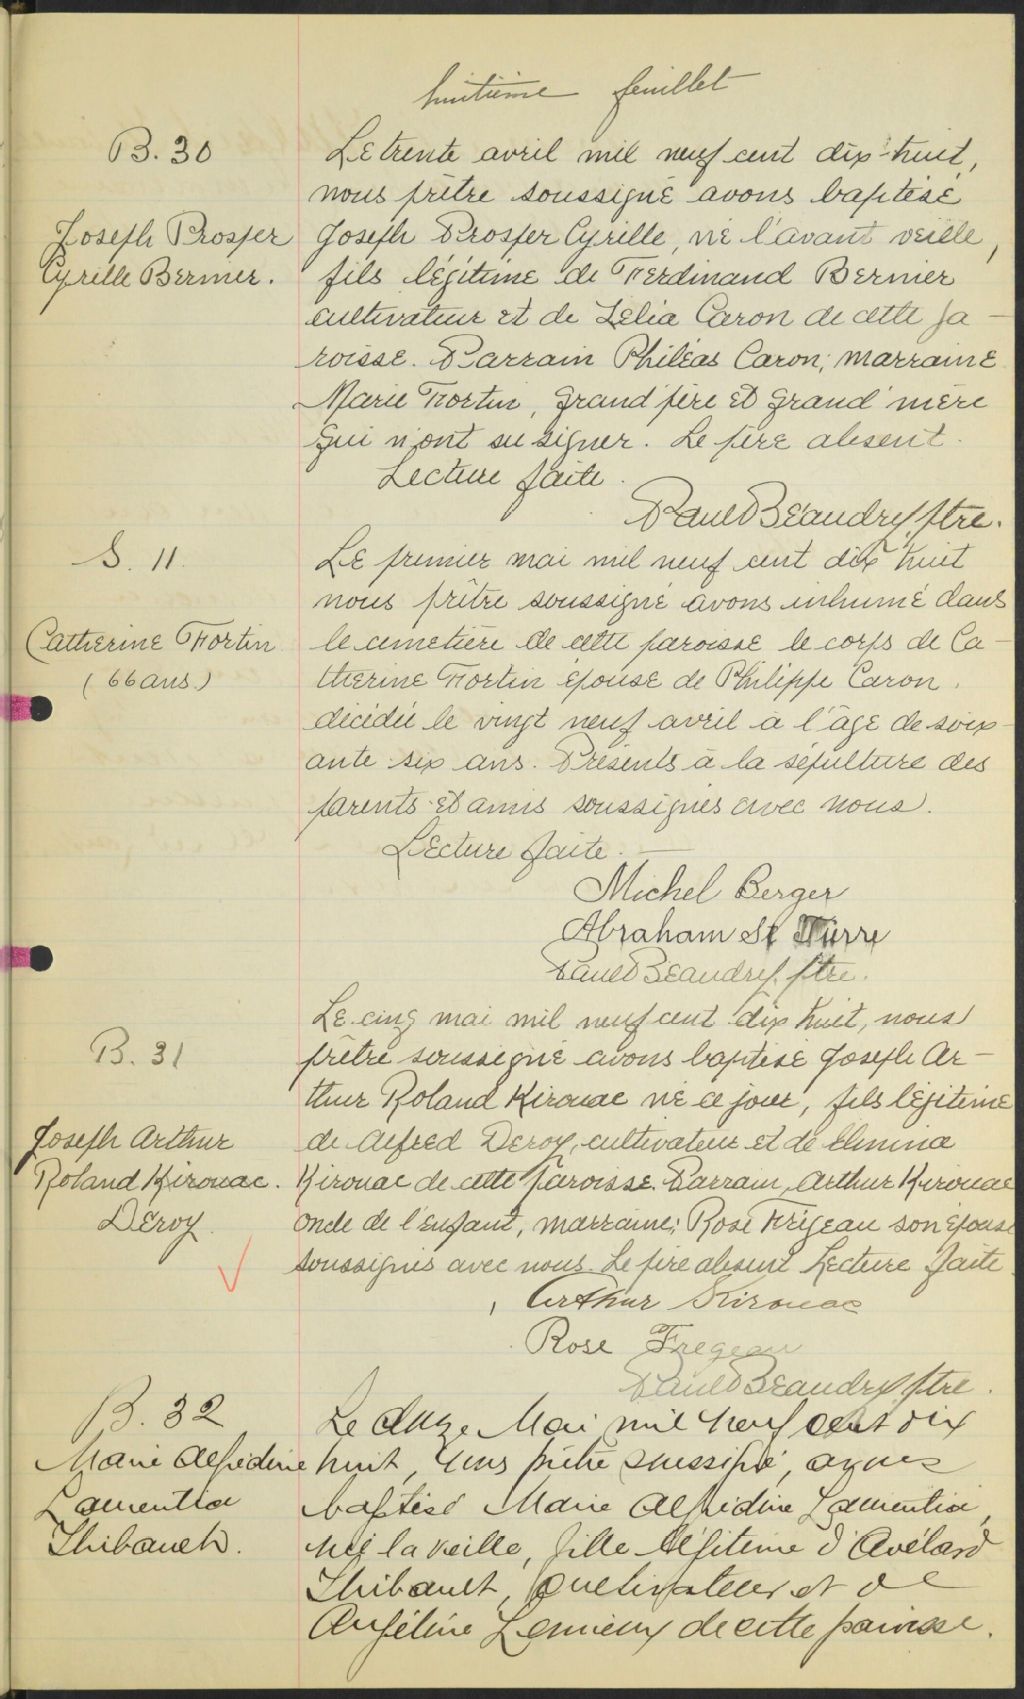 huitième feuillet
B. 30
Joseph Prosper
Cyrille Bernier.
Le trente avril mil neuf cent dix-huit,
nous prêtre soussigné avons baptisé
Joseph Prosper Cyrille, né l'avant veille,
fils légitime de Ferdinand Bernier
cultivateur et de Lélia Caron de cette pa-
roisse. Parrain Philéas Caron; marraine
Marie Fortin, grand'père et grand'mère
qui n'ont su signer. Le père absent.
Lecture faite.
Paul Beaudry, ptre.
S. 11.
Catherine Fortin
(66 ans.)
Le premier mai mil neuf cent dix huit
nous prêtre soussigné avons inhumé dans
le cimetière de cette paroisse le corps de Ca-
therine Fortin épouse de Philippe Caron,
décédée le vingt neuf avril à l'âge de soix-
ante six ans. Présents à la sépulture des
parents et amis soussignés avec nous.
Lecture faite. —
Michel Berger
Abraham St Pierre
Paul Beaudry, ptre.
B. 31
Joseph Arthur
Roland Kirouac.
Deroy.
Le cinq mai mil neuf cent dix huit, nous
prêtre soussigné avons baptisé Joseph Ar-
thur Roland Kirouac né ce jour, fils légitime
de Alfred Deroy, cultivateur et de Elmina
Kirouac de cette Paroisse. Parrain, Arthur Kirouac
oncle de l'enfant, marraine; Rose Frégeau son épouse
soussignés avec nous. Le père absent Lecture faite.
Arthur Kirouac
Rose Fregeau
Paul Beaudry ptre.
B. 32
Marie Alfrédine
Laurentia
Thibault.
Le douze Mai mil neuf cent dix
huit, nous prêtre soussigné, avons
baptisé Marie Alfrédine Laurentia,
née la veille, fille légitime d'Avélard
Thibault, cultivateur et de
Angéline Lemieux de cette paroisse.